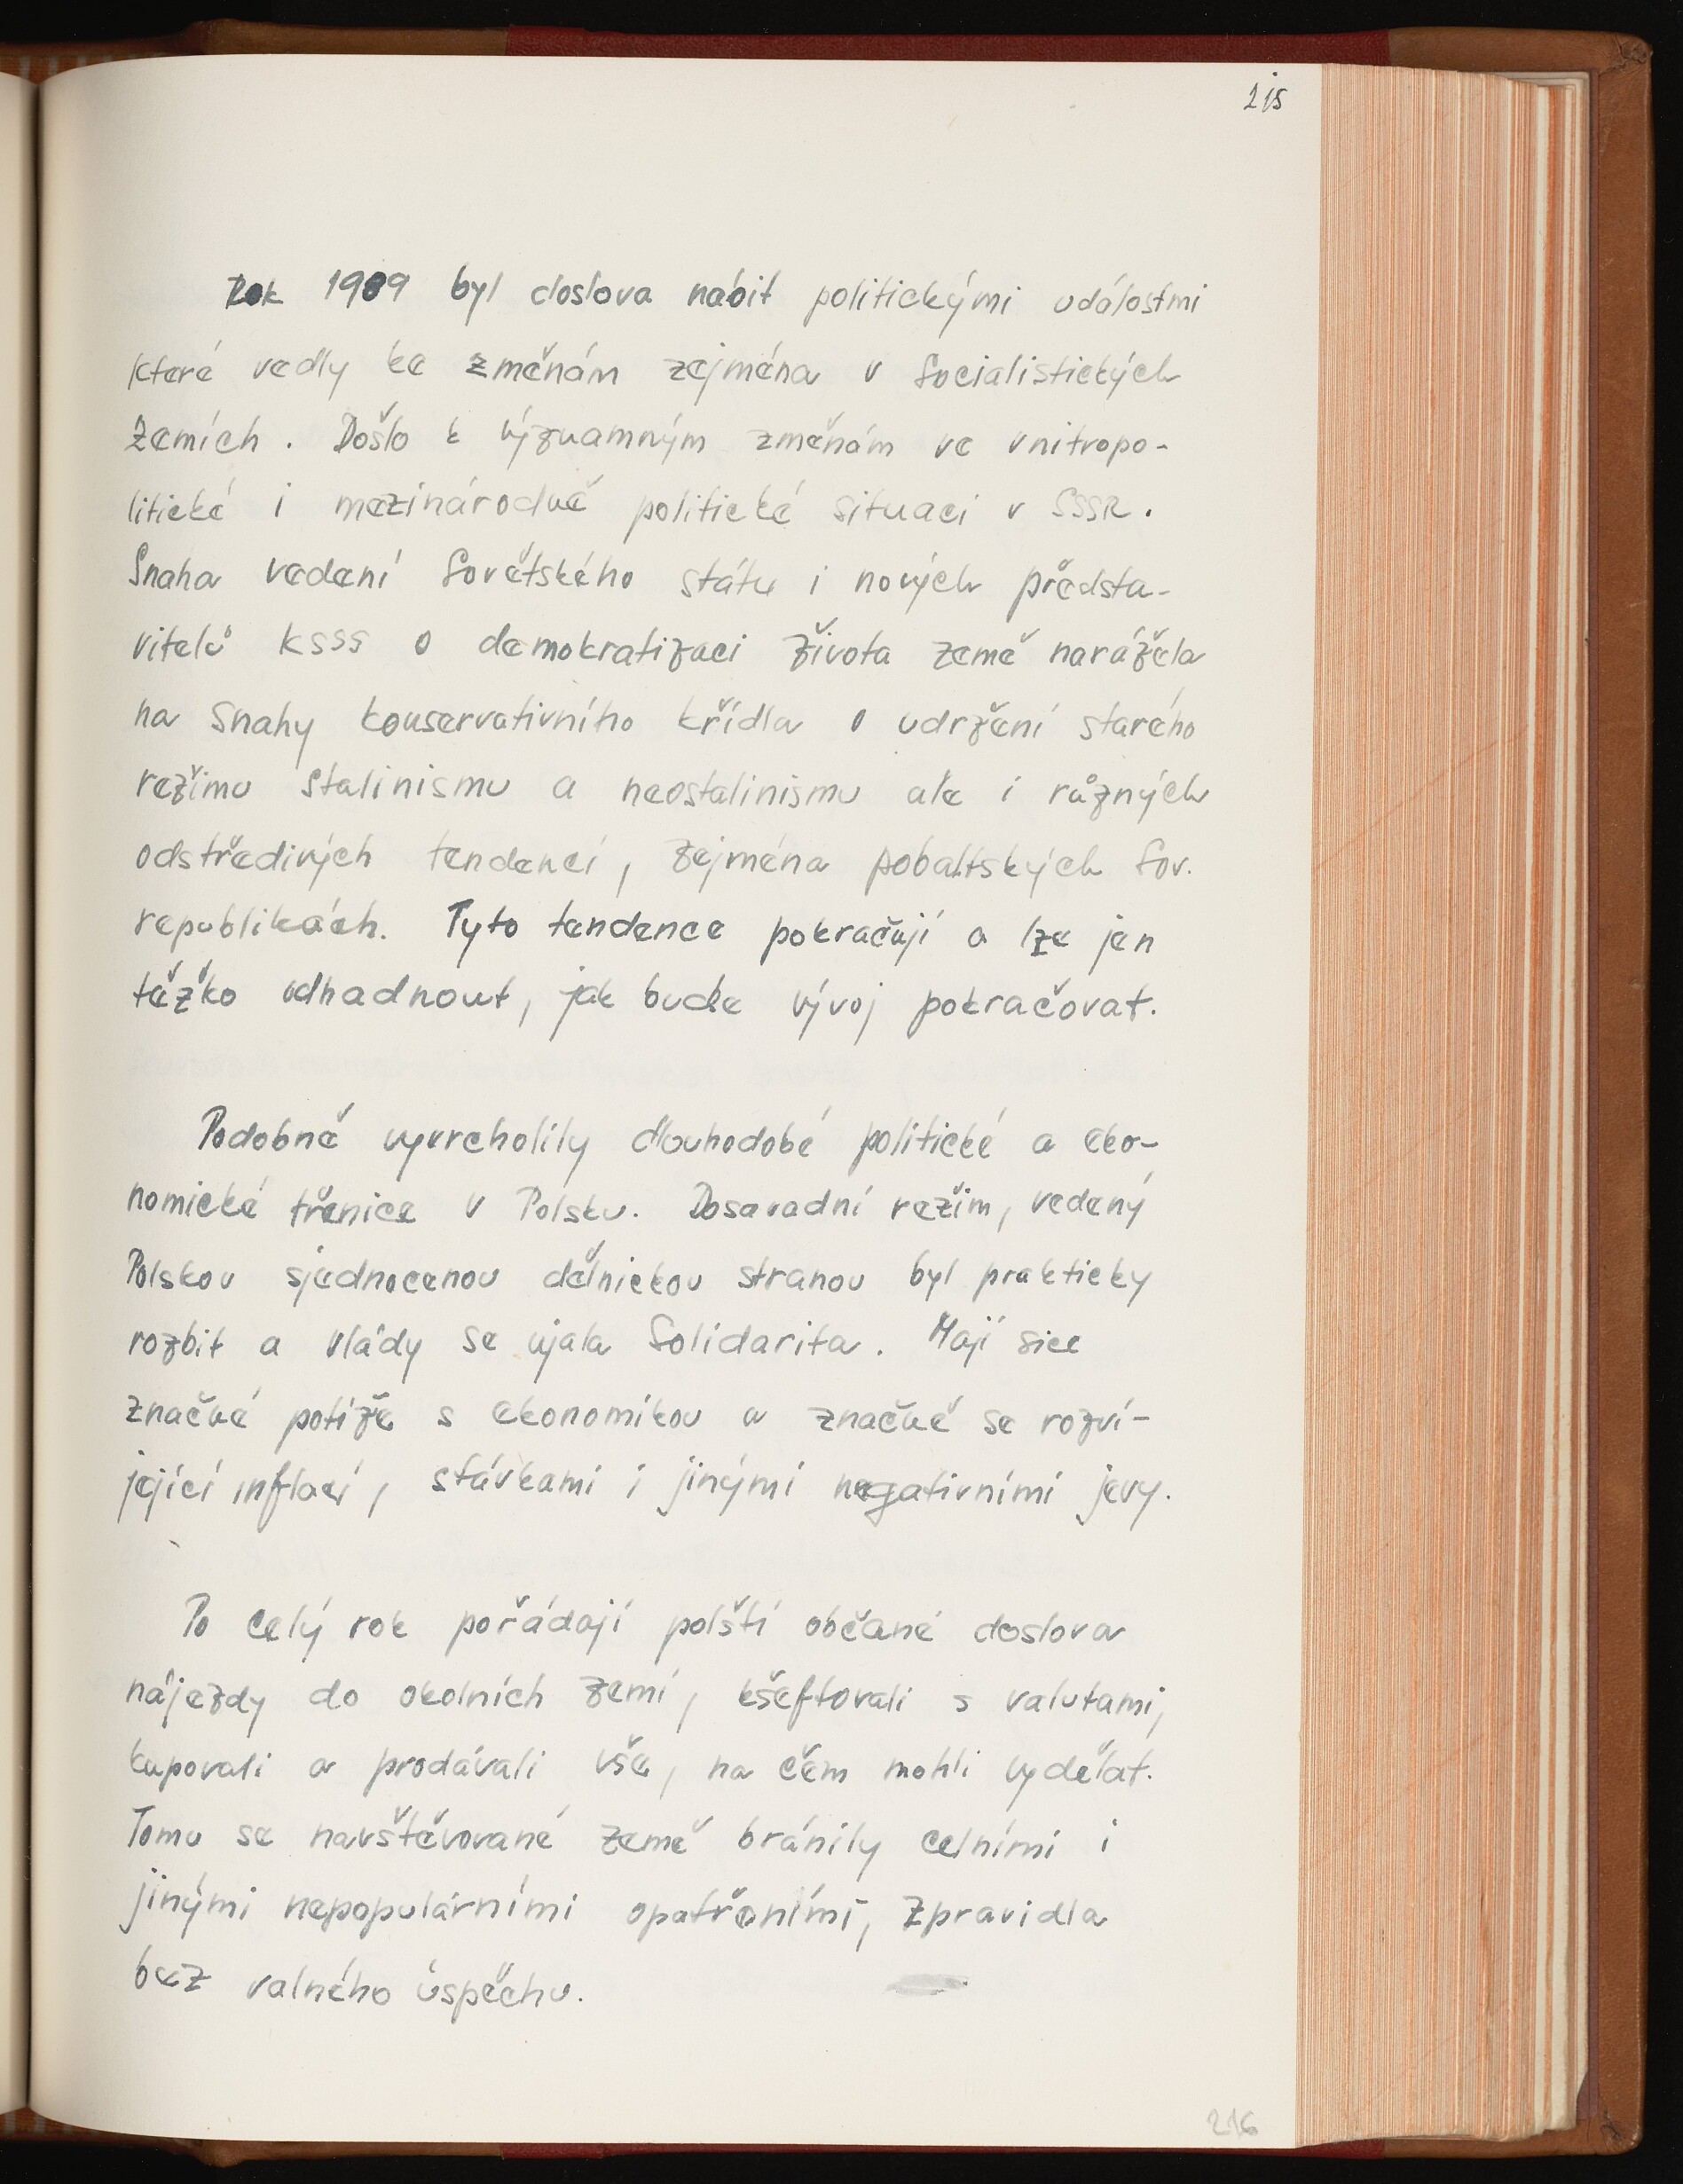 215
Rok 1989 byl doslova nabit politickými událostmi
které vedly ke změnám zejména v Socialistických
Zemích. Došlo k významným změnám ve vnitropo-
litické i mezinárodně politické situaci v SSSR.
Snaha vedení Sovětského státu i nových předsta-
vitelů KSSS o demokratizaci života země narážela
na snahy konservativního křídla o udržení starého
režimu Stalinismu a neostalinismu ale i různých
odstředivých tendencí, zejména pobaltských Sov.
republikách. Tyto tendence pokračují a lze jen
těžko odhadnout, jak bude vývoj pokračovat.
Podobně vyvrcholily dlouhodobé politické a eko-
nomické třenice v Polsku. Dosavadní režim, vedený
Polskou sjednocenou dělnickou stranou byl prakticky
rozbit a vlády se ujala Solidarita. Mají sice
značné potíže s ekonomikou a značně se rozví-
jející inflací, stávkami i jinými negativními jevy.
Po celý rok pořádají polští občané doslova
nájezdy do okolních zemí, kšeftovali s valutami,
kupovali a prodávali vše, na čem mohli vydělat.
Tomu se navštěvované země bránily celními i
jinými nepopulárními opatřeními, zpravidla
bez valného úspěchu.
216